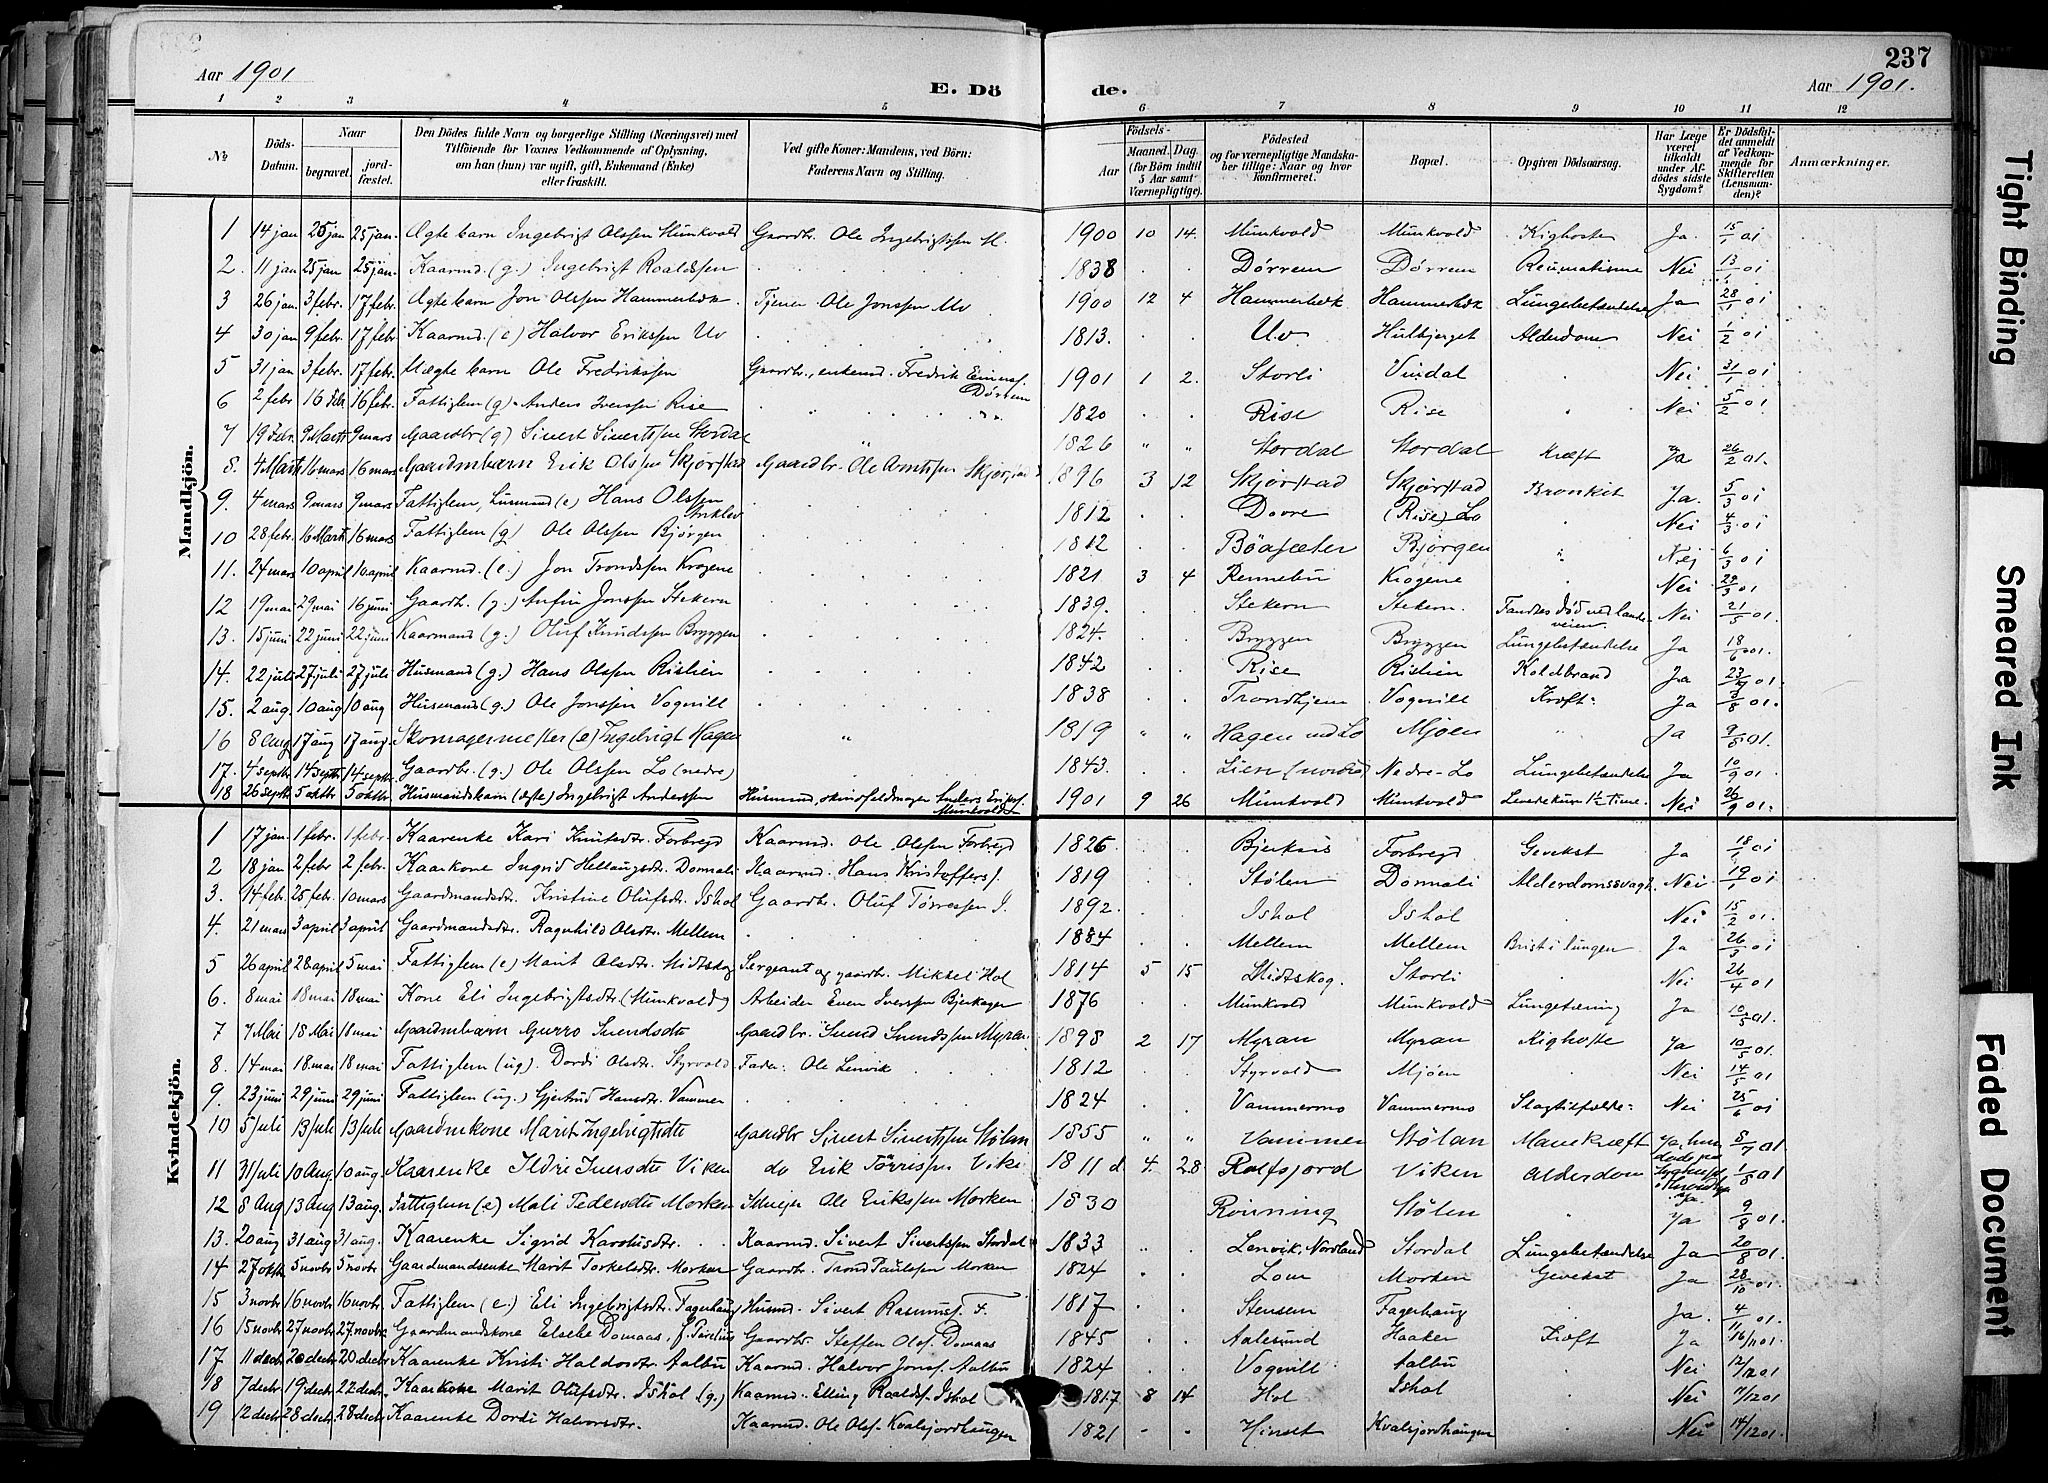 237
Aar 1901
E. Dö
de.
Aar 1901.
1 2 3 4 5 6 7 8 9 10 11 12
№
Döds-Datum.
Naar
begravet.
jordfæstet.
Den Dödes fulde Navn og borgerlige Stilling (Næringsvei) med
Tilföiende for Voxnes Vedkommende af Oplysning,
om han (hun) var ugift, gift, Enkemand (Enke)
eller fraskilt.
Ved gifte Koner: Mandens, ved Börn:
Faderens Navn og Stilling.
Födsels-
Aar
Maaned. Dag.
(for Börn indtil
5 Aar samt
Værnepligtige).
Födested
og for værnepligtige Mandska-
ber tillige: Naar og hvor
konfirmeret.
Bopæl.
Opgiven Dödsaarsag.
Har Læge
været
tilkaldt
under Af-
dödes sidste
Sygdom?
Er Dödsfal-
det anmeldt
af Vedkom-
mende for
Skifteretten
(Lensman-
den)?
Anmærkninger.
Mandkjön.
1 14 jan 25 jan 25 jan. Ægte barn Ingebrigt Olssen Munkvold Gaardbr. Ole Ingebrigtssen M. 1900 10 14. Munkvold Munkvold Kighoste Ja. 15/1 01
2. 11 jan 25 jan 25 jan. Kaarmd. (g.) Ingebrigt Roaldssen 1838 Dörrem Dörrem Reumatisme Nei 13/1 01
3 26 jan. 3 febr. 17 febr. Ægte barn Jon Olssen Hammerbæk. Tjener Ole Jonssen Uv 1900 12 4 Hammerbæk Hammerbæk Lungebetændelse Ja 28/1 01
4 30 jan 9 febr. 17 febr Kaarmd. (e) Halvor Erikssen Uv 1813. Uv Hulbjerget Alderdom Nei 1/2 01
5 31 jan 3 febr. 17 febr. Uægte barn Ole Fredrikssen Gaardbr., enkemd. Fredrik Einarss. Dörrem 1901 1 2. Storli Vindal Nei 31/1 01
6 2 febr 16 Febr 16 febr. Fattiglem (g). Anders Iverssen Rise 1820 Rise Rise Nei 5/2 01
7 19 Febr. 9 Marts 9 mars Gaardbr (g) Sivert Sivertssen Stordal 1826 Stordal Stordal Kræft Ja 26/2 01.
8. 4 Marts 16 mars 16 mars Gaardmbarn Erik Olssen Skjørstad Gaardbr. Ole Arntssen Skjørstad 1896 3 12 Skjørstad Skjørstad Bronkit Ja. 5/3 01
9. 4 mars 9 mars 9 mars Fattiglem, Husmand (e) Hans Olssen 1812 Dovre (Rise) Lo Nei 4/3 01
10 28 febr. 16 Marts 16 mars Fattiglem (g) Ole Olssen Bjørgen 1812 Böasæter Bjørgen Nej 6/3 01
11. 24 mars 10 april 10 april Kaarmd. (e.) Jon Trondssen Krogene 1821 3 4 Rennebu Krogene Nei 29/3 01
12 19 mai 29 mai 16 juni Gaardb. (g.) Anfin Jonssen Stekern 1839. Stekern Stekern. Fandtes död ved landeveien Nei 21/5 01.
13. 15 juni 22 juni 22 juni Kaarmand (g.) Oluf Knudssen Bryggen 1824. Bryggen Bryggen Lungebetændelse Ja 18/6 01.
14. 22 juli 27 juli 27 juli Husmand (g.) Hans Olssen Rislien 1842 Rise Rislien Koldbrand Ja 23/7 01
15. 2 aug. 10 aug 10 aug Husmand (g.) Ole Jonssen Vognill 1838 Trondhjem Vognill Kræft. Ja 3/8 01.
16 8 Aug 17 aug 17 aug. Skomagermester (e) Ingebrigt Hagen 1819 Hagen ved Lo Mjøen Ja 9/8 01.
17. 4 septbr 14 septbr 14 septbr. Gaardbr. (g.) Ole Olssen Lo (nedre) 1843. Lien (nordre) Nedre-Lo Lungebetændelse Ja 10/9 01.
18 26 septbr 5 oktbr 5 oktbr Husmandsbarn (ægte) Ingebrigt Anderssen Husmand, skindfeldmager Anders Erikss. Munkvold 1901 9 26 Munkvold Munkvold Levede kun 1½ time. Nei 26/9 01.
Kvindekjön.
1 17 jan. 1 febr. 1 febr. Kaarenke Kari Knutsdtr. Forbregd Kaarmd. Ole Olssen Forbregd 1826. Forbregd Gevekst Ja 18/1 01
2 18 jan 2 febr 2 febr. Kaarkone Ingrid Hellaugsdtr. Donnali Kaarmd. Hans Kristofferss. 1819 Stølen Donnali Alderdomssvagh. Nei 19/1 01
3. 14 febr. 25 febr. 10 mars Gaardmandsdtr. Kristine Olufsdtr. Ishol Gaardbr. Oluf Tørressen I. 1892. Ishol Ishol Nei 15/2 01.
4. 21 mars 3 april 3 april Gaardmandsdtr. Ragnhild Olsdtr. Mellem 1884 Mellem Mellem Brist i lungen Ja 26/3 01
5 26 april 28 april 5 mai Fattiglem (e) Marit Olsdtr. Midtskog Sergeant og gaardbr. Mikkel Hol 1814 5 15 Midtskog. Storli Nei 26/4 01
6. 8 mai 18 mai 18 mai Kone Eli Ingebrigtsdtr. (Munkvold) Arbeider Even Iverssen Bjerkager 1876 Munkvold Munkvold Lungetæring Ja 10/5 01.
7 7 Mai 18 Mai 18 mai Gaardmbarn Guro Svendsdtr Gaardbr. Svend Svendssen Myran. 1898 2 17 Myran Myran Kighoste Ja 10/5 01.
8. 14 mai 18 mai 18 mai Fattiglem (ug). Dordi Olsdtr. Styrvold Fader: Ole Lenvik 1812 Styrvold Mjöen Nei 14/5 01
9. 23 juni 29 juni 29 juni Fattiglem (ug.) Gjertrud Hansdtr. Vammer 1824 Vammermo Vammermo Slagtilfælde Nei 25/6 01
10 5 Juli 13 Juli 13 Juli Gaardmkone Marit Ingebrigtsdtr Gaardbr Sivert Sivertssen Stølan 1855 Vammer Stølan Mavekræft 8/7 01.
11 31 Juli 10 Aug. 10 aug. Kaarenke Ildri Iversdtr Viken do Erik Tørrissen Viken 1811 d. 4. 28 Rolfsjord Viken Alderdom 1/8 01
12 8 Aug 13 Aug 13 aug. Fattiglem (e) Mali Pedersdtr Morken Ole Erikssen Morken 1830 Rønning Stølen Ja 9/8 01.
13. 20 aug 31 aug 31 aug. Kaarenke Sigrid Karolusdtr. Kaarmd. Sivert Sivertssen Stordal 1833 Lenvik, Nordland Stordal Lungebetændelse Ja 20/8 01.
14 27 oktbr 5 novbr 5 novbr. Gaardmandsenke Marit Torkelsdtr. Morken Gaardbr. Trond Paulssen Morken 1824 Lom Morken Gevekst Ja 28/10 01.
15 3 novbr 16 novbr 16 novbr. Fattiglem (e.) Eli Ingebrigtsdtr. Fagerhaug Husmd. Sivert Rasmuss. F. 1817 Stensem Fagerhaug Ja. 4/11 01.
16 15 novbr 27 novbr 27 novbr. Gaardmandskone Elsebe Domaas, f. Gaardbr. Steffen Olss. Domaas 1845 Aalesund Haaker Kræft Ja 16/11 01.
17 11 decbr 20 decbr 20 decbr Kaarenke Kristi Haldosdtr. Aalbu Kaarmd. Halvor Jonss. Aalbu 1824 Vognill Aalbu Nei 12/12 01
18 7 decbr 19 decbr 22 decbr. Kaarkone Marit Olufsdtr. Ishol (g.) Kaarmd. Elling Roaldss. Ishol 1817 8 14 Hol Ishol Nei 7/12 01
19 12 decbr 28 decbr. 28 decbr. Kaarenke Dordi Halvorsdtr. Kaarmd. Ole Olss. Kvalsjordhaugen 1821 Hinset Kvalsjordhaugen Nei 14/12 01.
Tight Binding
Smeared Ink
Faded Document